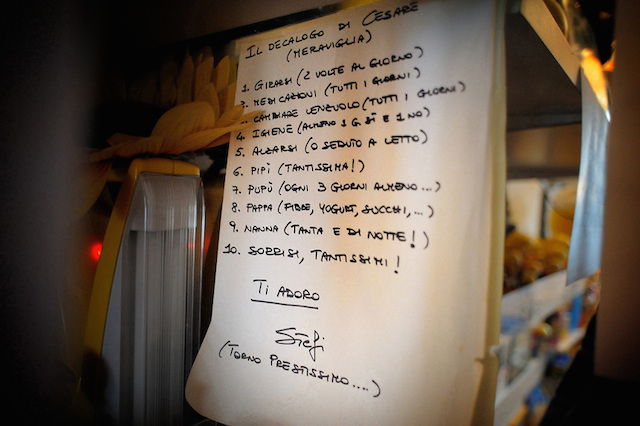 IL DECALOGO DI CESARE
(MERAVIGLIA)
1. GIRARSI (2 VOLTE AL GIORNO)
2. MEDICAZIONI (TUTTI I GIORNI)
3. CAMBIARE LENZUOLO (TUTTI I GIORNI)
4. IGIENE (ALMENO 1 G. SÌ E 1 NO)
5. ALZARSI (O SEDUTO A LETTO)
6. PIPÌ (TANTISSIMA!)
7. PUPÙ (OGNI 3 GIORNI ALMENO...)
8. PAPPA (FIBRE, YOGURT, SUCCHI,...)
9. NANNA (TANTA E DI NOTTE!)
10. SORRISI, TANTISSIMI!
TI ADORO
Stefi
(TORNO PRESTISSIMO....)